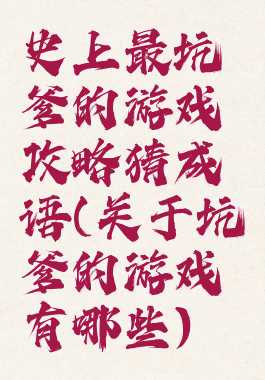 史上最坑
爹的游戏
攻略猜成
语(关于坑
爹的游戏
有哪些)